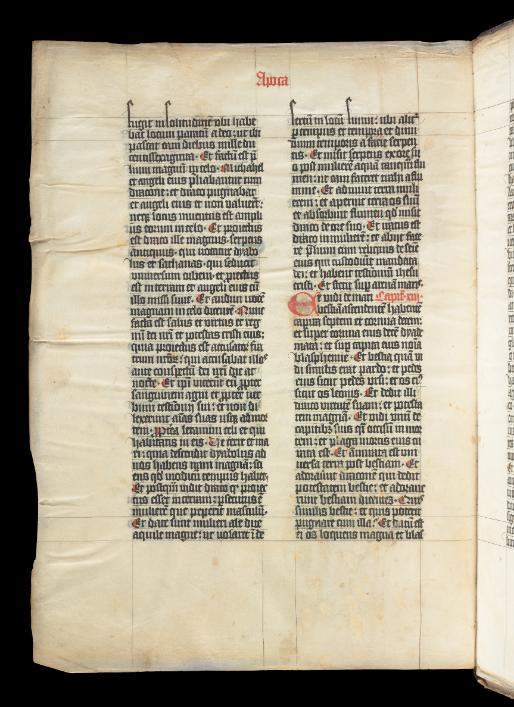 Apoca
fugit in solitudinem ubi habe
bat locum paratū a deo: ut ibi
pascant eam diebus mille du
centis sexaginta. Et factū est p̄
lium magnū in celo. Michahel
et angeli eius p̄liabantur cum
dracone: et draco pugnabat
et angeli eius et non valuerūt:
neqꝫ locus inventus est ampli
us eorum in celo. Et proiectus
est draco ille magnus. serpens
antiquus. qui vocatur dyabo
lus et sathanas. qui seducit
universum orbem. et proiectus
est in terram et angeli eius cū
illo missi sunt. Et audivi vocē
magnam in celo dicentē. Nunc
facta est salus et virtus et reg
nū dei nr̄i et potestas cristi eius:
quia proiectus est accusator fra
trum nr̄orꝫ. qui accusabat illos
ante conspectū dei nr̄i die ac
nocte. Et ip̄i vicerūt eū ꝓpter
sanguinem agni et ꝓpter ver
bum testimonii sui: et non di
lexerunt aīas suas usqꝫ ad mor
tem. ꝓpt̄ea letamini celi et qui
habitatis in eis. Ve terre et ma
ri: quia descendit dyabolus ad
vos habens iram magnā: sci
ens qd̄ modicū tempus habet.
Et postqm̄ vidit draco qd̄ proiec
tus esset in terram: psecutus ē
mulierē que peperit masculū.
Et date sunt mulieri ale due
aquile magne: ut volaret ī de
sertū in locū suum: ubi alit᷑
p tempus et tempora et dimi
dium temporis a facie serpen
tis. Et misit serpens ex ore su
o post mulierē aquā tanqm̄ flu
men: ut eam faceret trahi a flu
mine. Et adiuvit terra muli
erem: et aperuit terra os suū
et absorbuit flumen qd̄ misit
draco de ore suo. Et iratus est
draco in mulierē: et abiit face
re p̄lium cum reliquis de semīe
eius qui custodiūt mandata
dei: et habent testimoniū ihesu
cristi. Et stetit sup arenā mar̄.
Et vidi de mari Capitl̄. xiii.
bestiā ascendentē habentē
capita septem et cornua decem:
et super cornua eius decē dyade
mata: et sup capita eius noīa
blasphemie. Et bestia quā vi
di similis erat pardo: et pedes
eius sicut pedes vrsi: et os eiꝰ
sicut os leonis. Et dedit illi
draco virtutē suam: et potesta
tem magnā. Et vidi unū de
capitibꝫ suis qᷓsi occisū in mor
tem: et plaga mortis eius cu
rata est. Et ammirata est uni
versa terra post bestiam. Et
adoraverūt draconē qui dedit
potestatem bestie: et adorave
runt bestiam dicentes. Quis
similis bestie: et quis poterit
pugnare cum illa? Et datū est
ei os loquens magna et blas